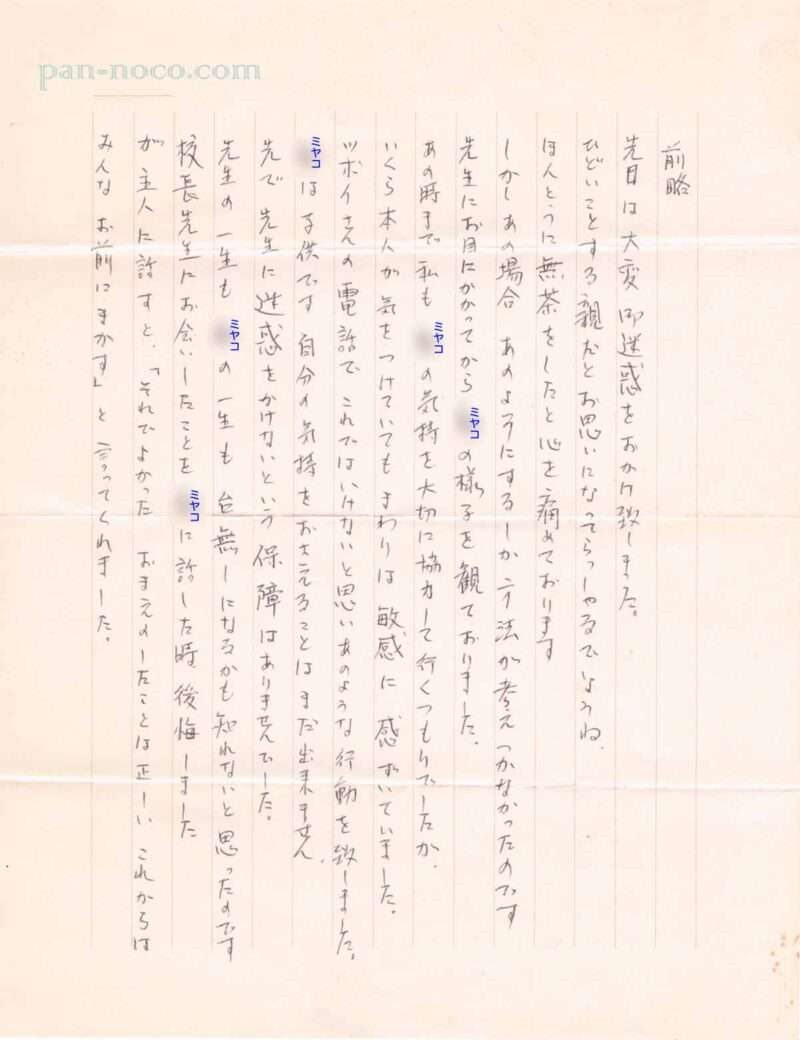 pan-noco.com
前略
先日は大変御迷惑をおかけ致しました。
ひどいことする親だとお思いになってらっしゃるでしょうね、
ほんとうに無茶をしたと心を痛めております
しかしあの場合 あのようにするしか方法が考えつかなかったのです
先生にお目にかかってからミヤコの様子を観ておりました。
あの時まで私もミヤコの気持を大切に協力して行くつもりでしたが、
いくら本人が気をつけていてもまわりは敏感に感ずいていました。
ツボイさんの電話でこれではいけないと思いあのような行動を致しました。
ミヤコは子供です 自分の気持をおさえることはまだ出来ません、
先で先生に迷惑をかけないという保障はありませんでした。
先生の一生もミヤコの一生も台無しになるかも知れないと思ったのです
校長先生にお会いしたことをミヤコに話した時、後悔しました
が、主人に話すと、「それでよかった おまえのしたことは正しい これからは
みんなお前にまかす」と言ってくれました。